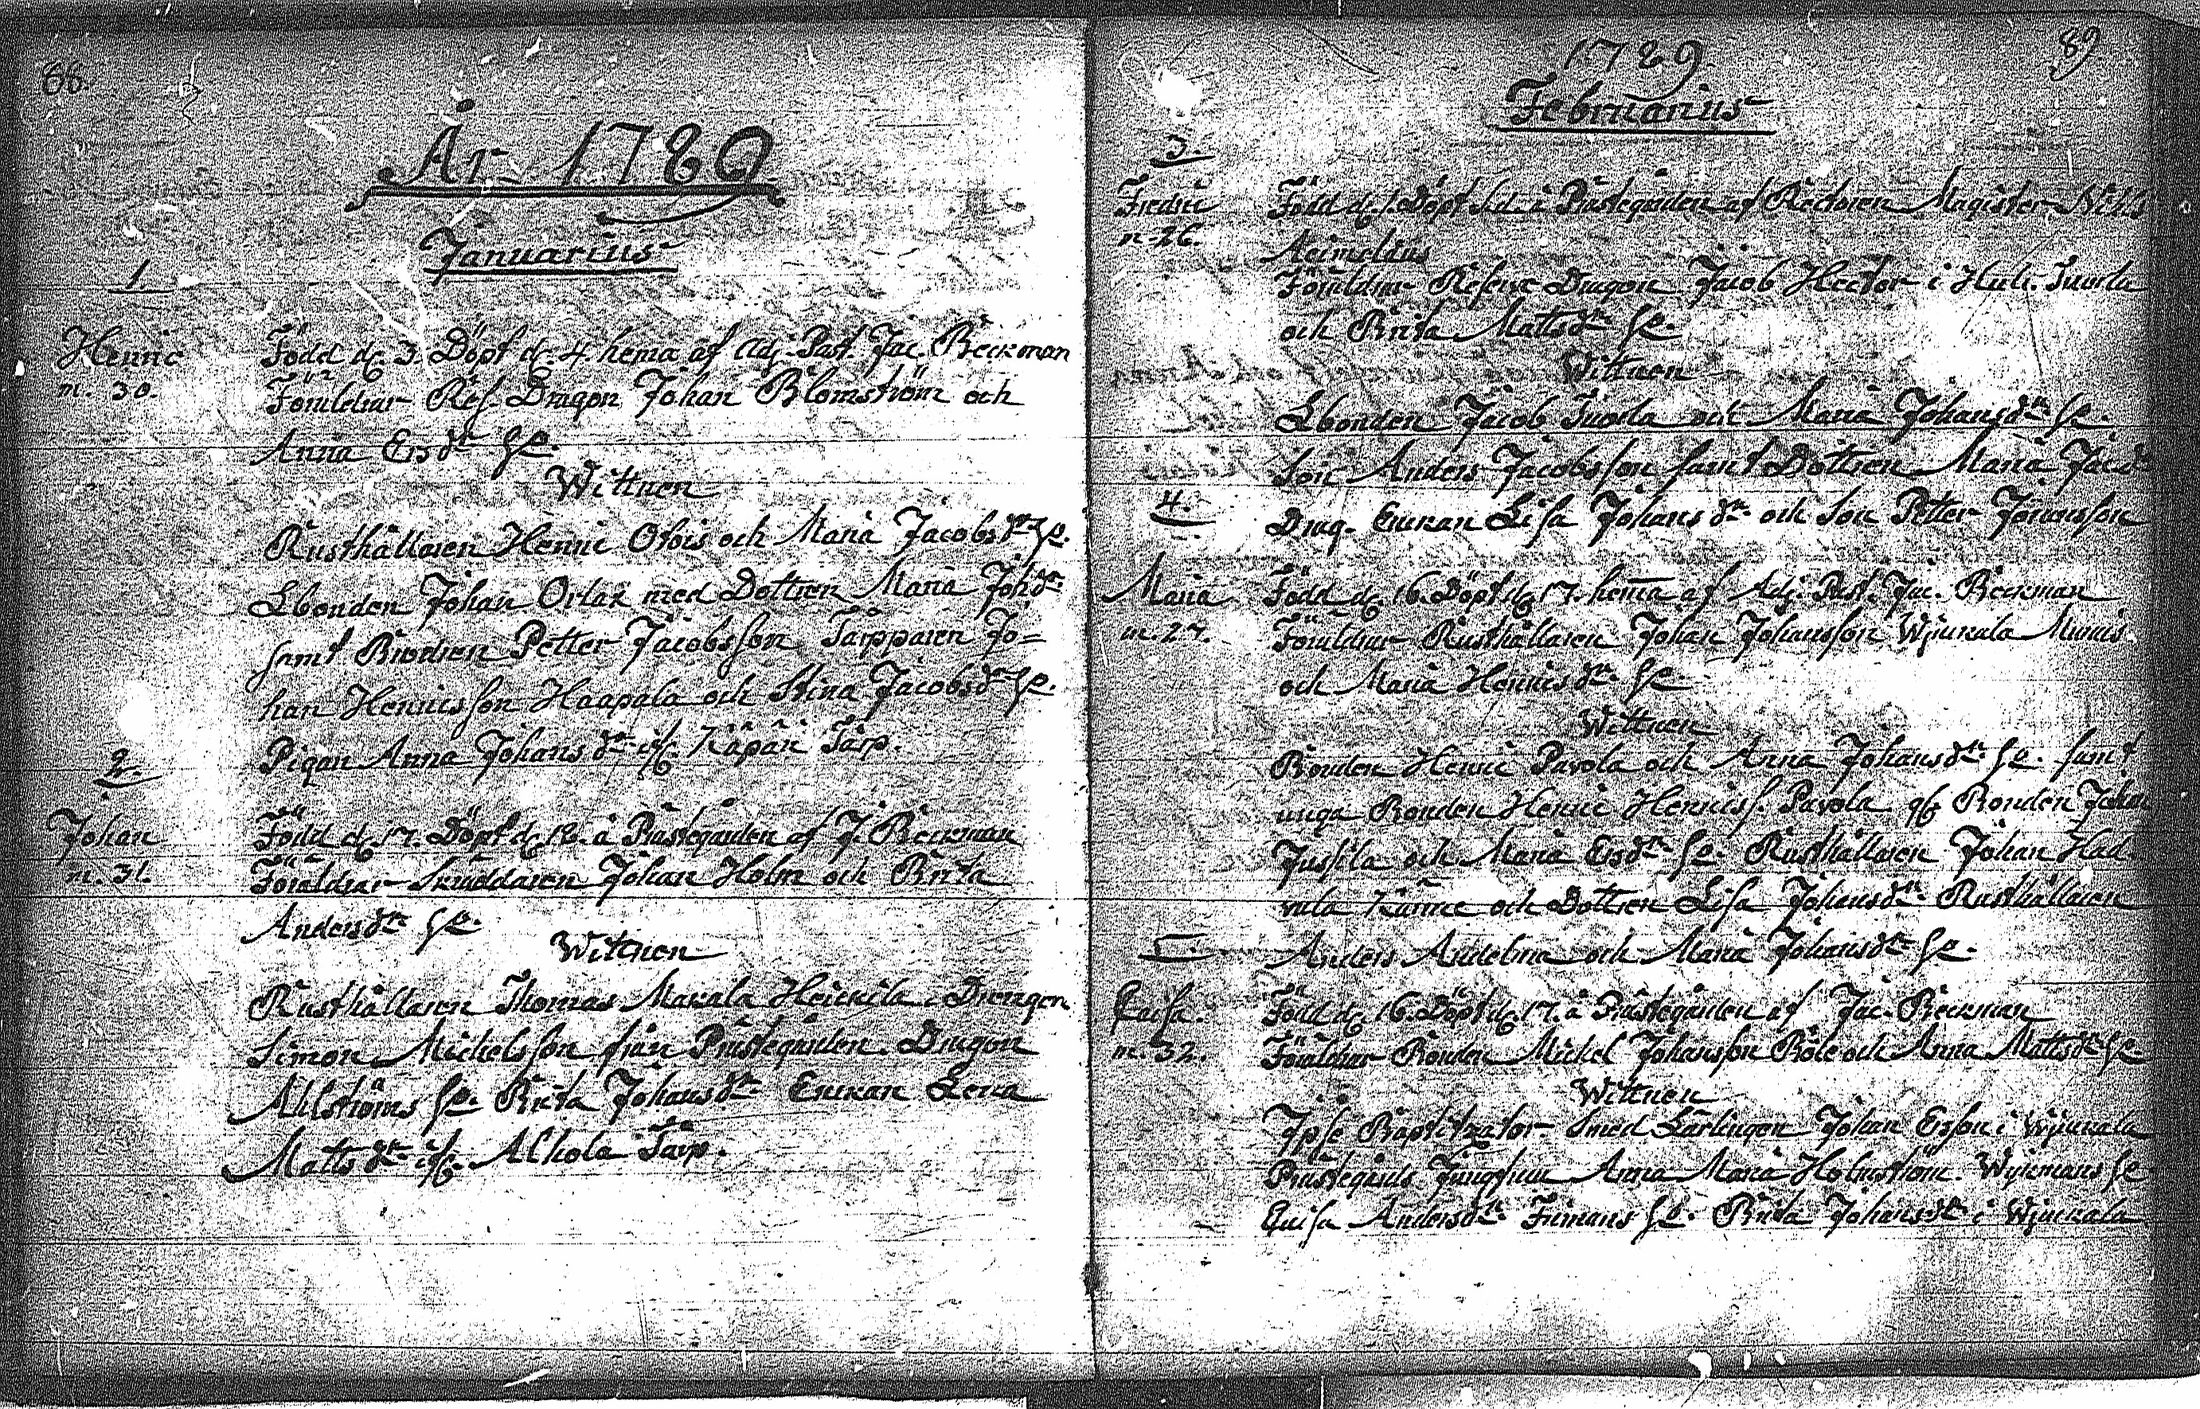 88.
År 1789
Januarius
1.
Henric Född d. 3. Döpt d. 4. hema af Adj. Past. Jac. Beckman
m. 30. Föräldrar Res. Dragon Johan Blomström och
Anna Ersdr hu.
Wittnen
Rusthållaren Henric Orbis och Maria Jacobsdr hu.
Ebonden Johan Ortax med Dottren Maria Johdr
samt Brodren Petter Jacobsson Tårpparen Jo-
han Henricsson Haapala och Stina Jacobsdr hu.
Pigan Anna Johansdr ifr. Käpäri Tårp.
2.
Johan Född d. 17. Döpt d. 18. å Prästegården af J. Beckman
m. 31. Föräldrar Skräddaren Johan Holm och Brita
Andersdr hu.
Wittnen
Rusthållaren Thomas Makala Heickilä. Drengen
Simon Michelsson från Prästegården. Dragon
Ahlströms hu. Brita Johansdr Enkan Lena
Mattsdr ifr. Alhola Tårp.
1789 89
Februarius
3.
Fredric Född d. 1. Döpt d. å Prästegården af Rectoren Magister
m. 26. Aeimelæus
Föräldrar Reserve Dragon Jacob Hector i Huli. Tuorla
och Brita Mattsdr hu.
Wittnen
Ebonden Jacob Tuorla och Maria Johansdr hu.
Son Anders Jacobsson samt Dottren Maria Jacdr
4. Drag. Enkan Lisa Johansdr och Son Petter Jöransson
Maria Född d. 16. Döpt d. 17. hema af Adj. Past. Jac. Beckman
m. 27. Föräldrar Rusthållaren Johan Johansson Wjuckala
och Maria Henricsdr hu.
Wittnen
Bonden Henric Pavola och Anna Johansdr hu. samt
unga Bonden Henric Henricss. Pavola Bonden Johan
Jussila och Maria Ersdr hu. Rusthållaren Johan Had-
vala och Dottren Lisa Johansdr Rusthållaren
5. Anders Andelma och Maria Johansdr hu.
Caisa. Född d. 16. Döpt d. 17. å Prästegården af Jac. Beckman
m. 32. Föräldrar Bonden Michel Johansson Böle och Anna Mattsdr hu
Wittnen
Ipse Baptizator Smed Lärlingen Johan Ersson i Wjuckala
Prästegårds Jungfrun Anna Maria Holmström. Wijkmans hu
Caisa Andersdr Frimans hu. Brita Johansdr i Wjuckala